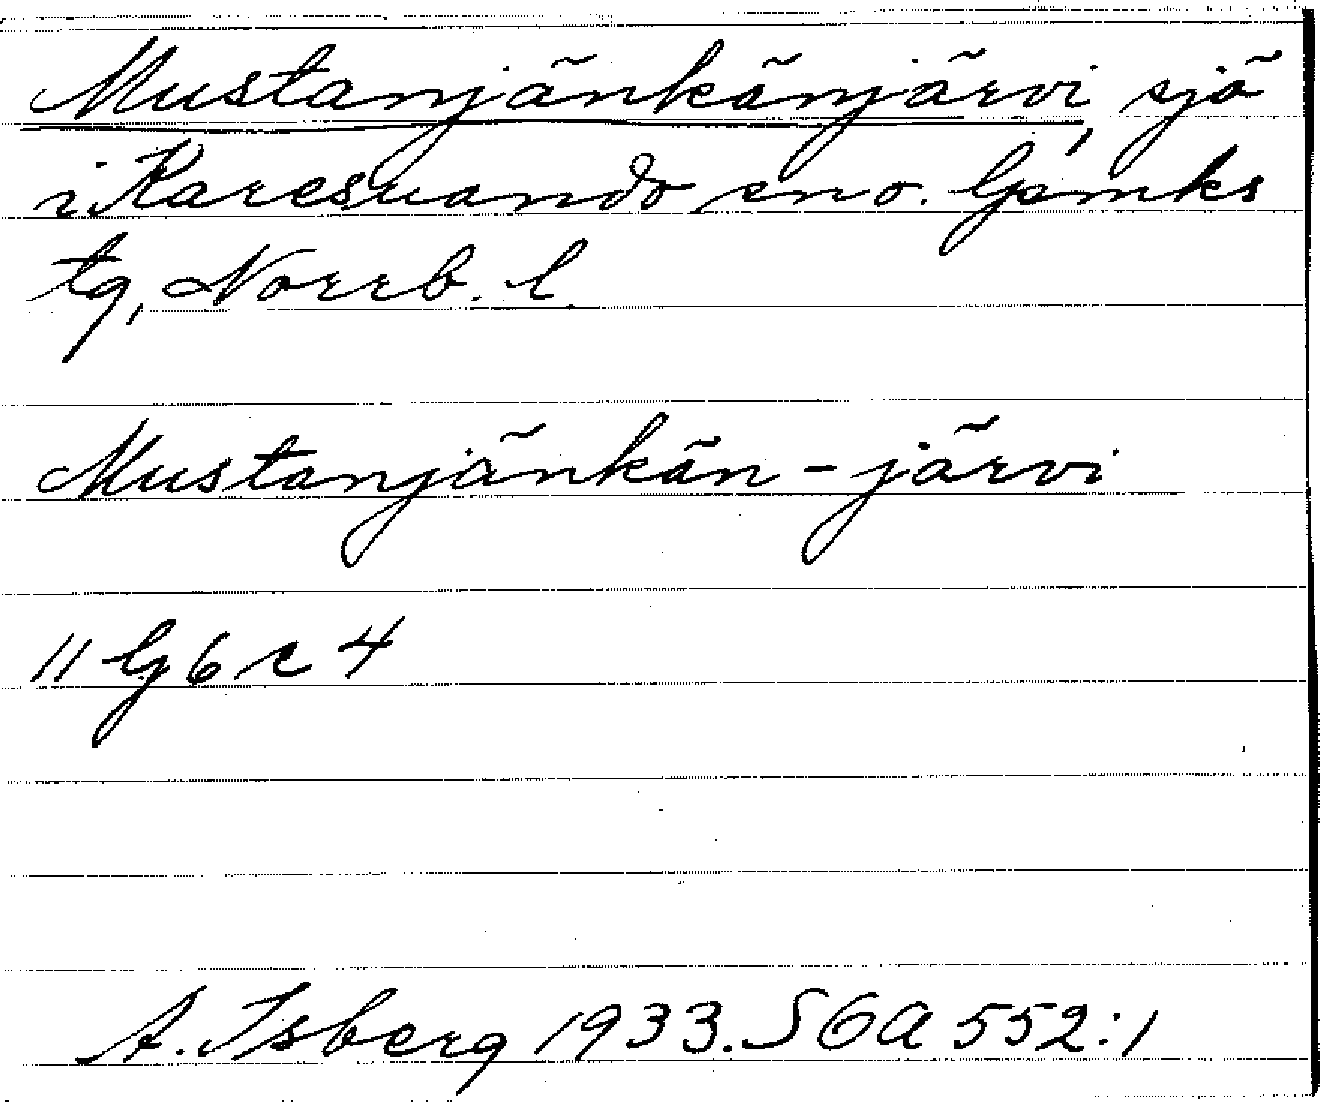 Mustanjänkänjärvi, sjö
i Karesuando sno. Jämks
tg, Norrb. l.
Mustanjänkän-järvi
11 G 6 c 4
A. Isberg 1933. SOA 552:1